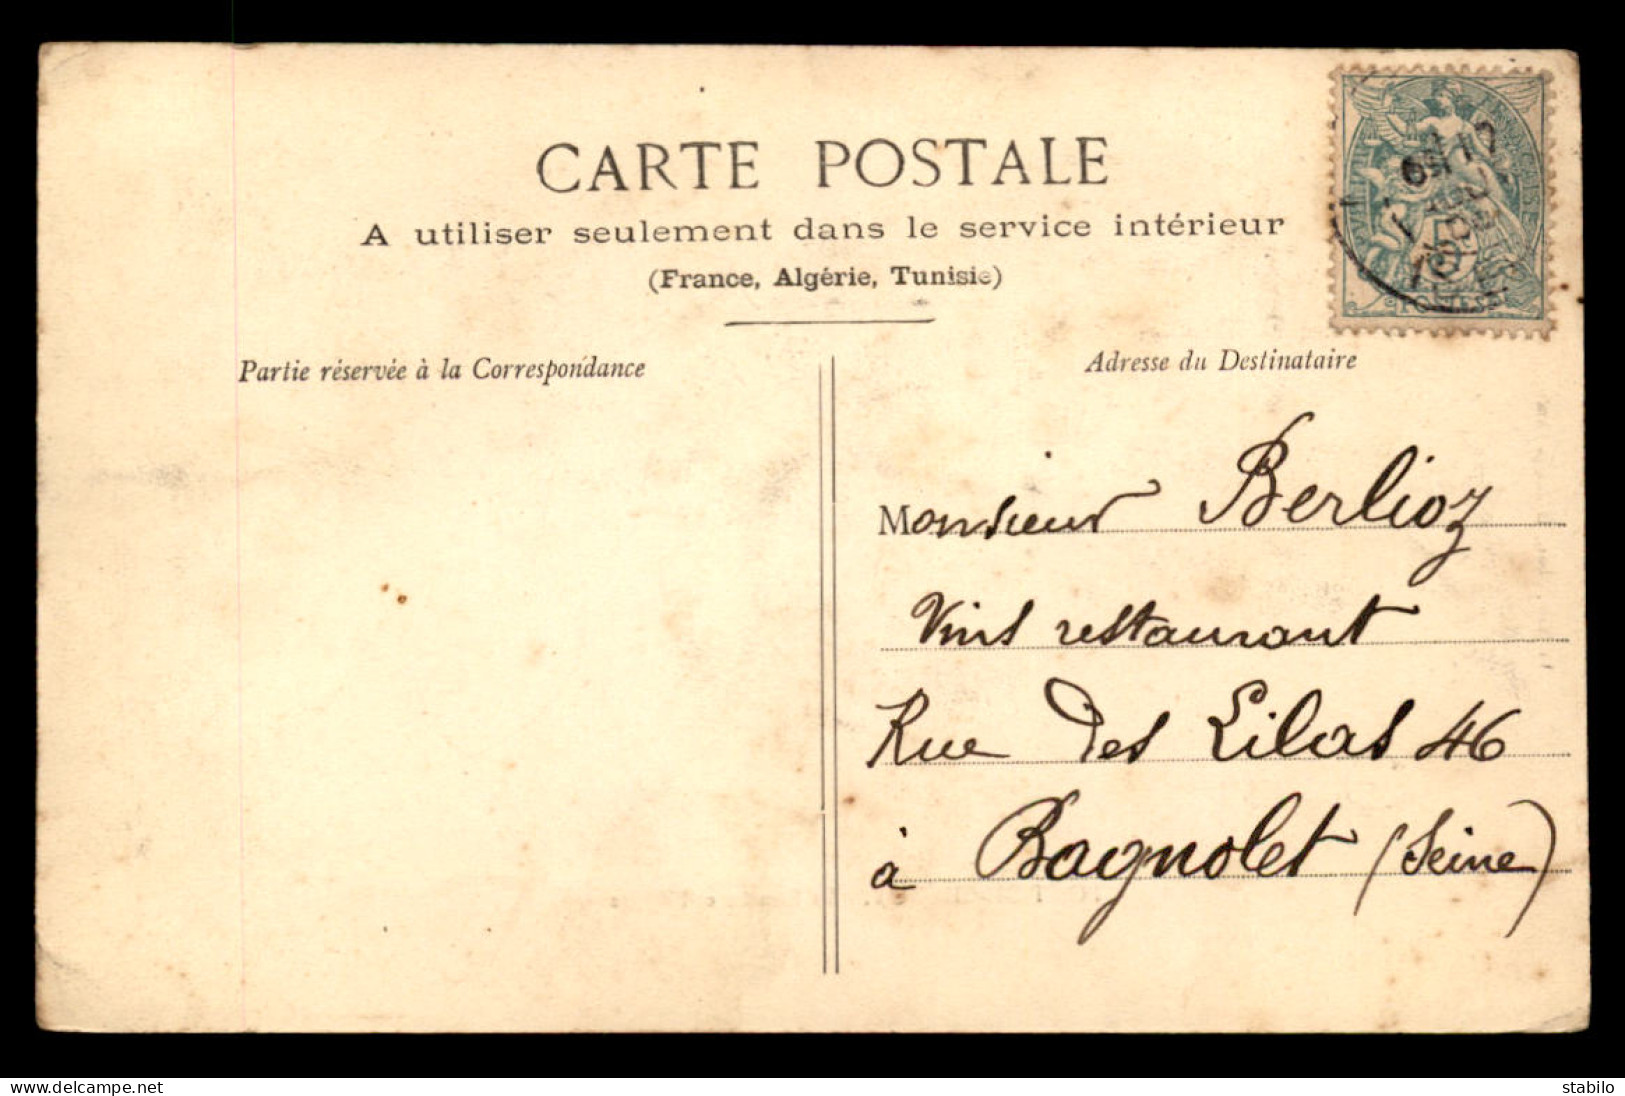 CARTE POSTALE
A utiliser seulement dans le service intérieur
(France, Algérie, Tunisie)
Partie réservée à la Correspondance
Adresse du Destinataire
Monsieur Berlioz
Vins restaurant
Rue des Lilas 46
à Bagnolet (Seine)
delcampe.net
stabilo